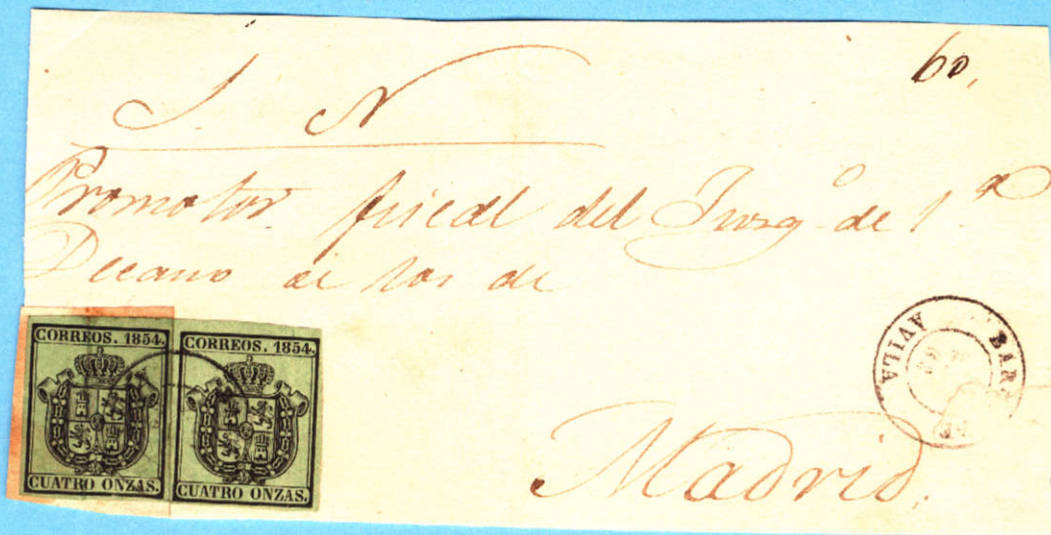 60,
S. N
Promotor fiscal del Juzg.º de 1.ª
Decano de los de
CORREOS. 1854. CORREOS. 1854.
CUATRO ONZAS. CUATRO ONZAS.
AVILA BAR
Madrid.